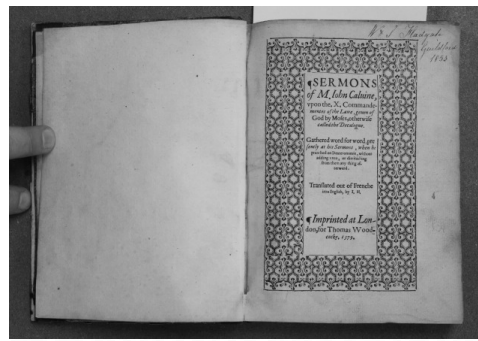 ¶SERMONS
of M. Iohn Caluine,
vpon the, X, Commande-
mentes of the Lawe, geuen of
God by Moses, otherwise
called the Decalogue.
Gathered word for word, pre-
sently at his Sermons, when he
preached on Deuteronomie, without
adding vnto, or diminishing
from them any thing af-
terward.
Translated out of Frenche
into English, by I. H.
¶Imprinted at Lon-
don, for Thomas Wood-
cocke,
Guildford